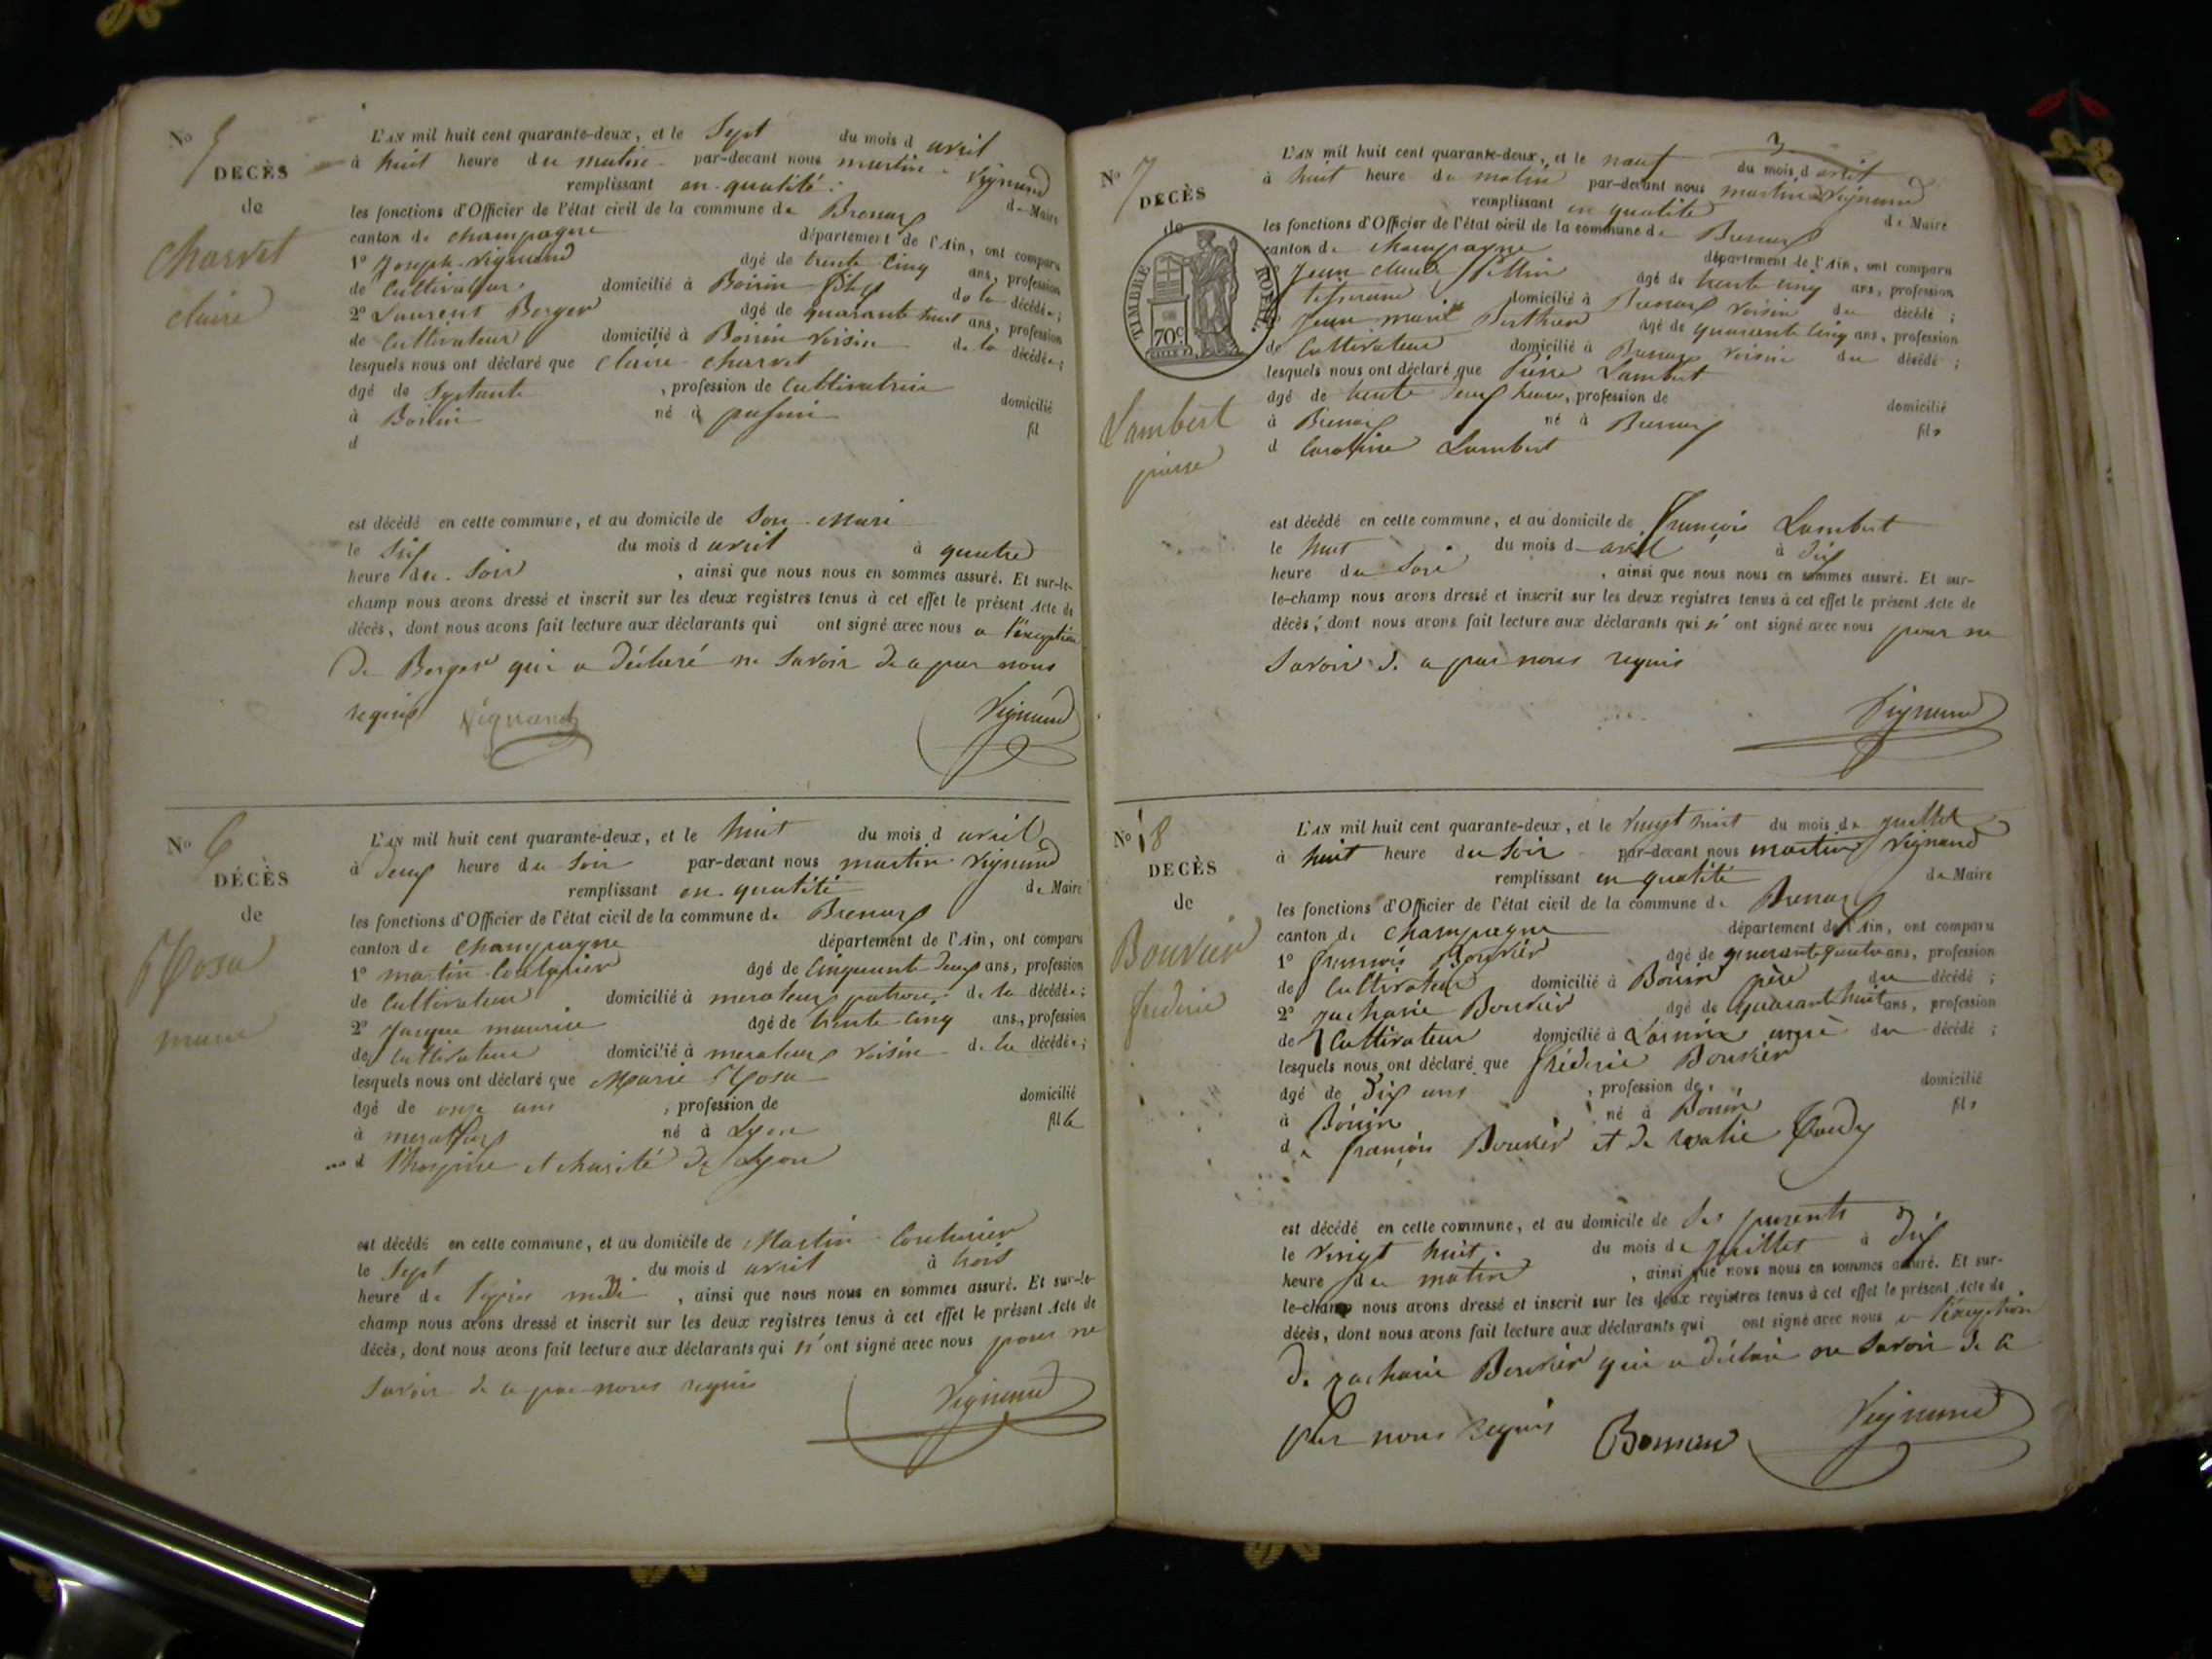 N° 5
DECÈS
de
Charvet
claire
L'AN mil huit cent quarante-deux, et le Sept du mois d avril
à huit heure du matin par-devant nous martin Vignand
remplissant en qualité de Maire
les fonctions d'Officier de l'état civil de la commune de Brenaz
canton de champagne département de l'Ain, ont comparu
1° Joseph Vignand âgé de trente cinq ans, profession
de Cultivateur domicilié à Boirin de la décédée;
2° Laurent Berger âgé de quarante huit ans, profession
de Cultivateur domicilié à Boirin voisin de la décédée;
lesquels nous ont déclaré que Claire Charvet
âgé de Septante , profession de Cultivatrice domicilié
à Boirin né à fil
d
est décédé en cette commune, et au domicile de Son Mari
le Six du mois d avril à quatre
heure du Soir , ainsi que nous nous en sommes assuré. Et sur-le-
champ nous avons dressé et inscrit sur les deux registres tenus à cet effet le présent Acte de
décès, dont nous avons fait lecture aux déclarants qui ont signé avec nous a l'exception
De Berger qui a déclaré ne Savoir de a par nous
requis Vignand Vignand
N° 6
DÉCÈS
de
Rosa
marie
L'AN mil huit cent quarante-deux, et le huit du mois d avril
à Deux heure du Soir par-devant nous martin Vignand
remplissant en qualité de Maire
les fonctions d'Officier de l'état civil de la commune de Brenaz
canton de Champagne département de l'Ain, ont comparu
1° martin Couturier âgé de Cinquante Deux ans, profession
de Cultivateur domicilié à meraleaz patron de la décédée;
2° Jacque maurice âgé de trente Cinq ans, profession
de Cultivateur domicilié à meraleaz voisin de la décédée;
lesquels nous ont déclaré que Marie Rosa
âgé de onze ans , profession de domicilié
à né à Lyon fille
d l'hospice et charité de Lyon
est décédé en cette commune, et au domicile de Martin Couturier
le Sept du mois d avril à trois
heure de midi , ainsi que nous nous en sommes assuré. Et sur-le-
champ nous avons dressé et inscrit sur les deux registres tenus à cet effet le présent Acte de
décès, dont nous avons fait lecture aux déclarants qui n' ont signé avec nous pour ne
Savoir de a par nous requis Vignand
3
N° 7
DECÈS
de
TIMBRE ROYAL
70c
Lambert
pierre
L'AN mil huit cent quarante-deux, et le neuf du mois d avril
à huit heure du matin par-devant nous martin Vignand
remplissant en qualité de Maire
les fonctions d'Officier de l'état civil de la commune de Brenaz
canton de Champagne département de l'Ain, ont comparu
Jean claude âgé de trente cinq ans, profession
tisserand domicilié à Brenaz voisin du décédé;
Jean marie Berthier âgé de quarante cinq ans, profession
de Cultivateur domicilié à Brenaz voisin du décédé;
lesquels nous ont déclaré que Pierre Lambert
âgé de trente Deux heures, profession de domicilié
à Brenaz né à Brenaz fils
d Caroline Lambert
est décédé en cette commune, et au domicile de François Lambert
le huit du mois d avril à dix
heure du Soir , ainsi que nous nous en sommes assuré. Et sur-
le-champ nous avons dressé et inscrit sur les deux registres tenus à cet effet le présent Acte de
décès, dont nous avons fait lecture aux déclarants qui n' ont signé avec nous pour ne
Savoir de a par nous requis
Vignand
N° 8
DÉCÈS
de
Bouvier
frederic
L'AN mil huit cent quarante-deux, et le Vingt huit du mois de juillet
à huit heure du Soir par-devant nous martin Vignand
remplissant en qualité de Maire
les fonctions d'Officier de l'état civil de la commune de Brenaz
canton de Champagne département de l'Ain, ont comparu
1° françois Bouvier âgé de quarante quatre ans, profession
de Cultivateur domicilié à Boirin père du décédé;
2° zacharie Bouvier âgé de quarant huit ans, profession
de Cultivateur domicilié à du décédé;
lesquels nous ont déclaré que frédéric Bouvier
âgé de Dix ans , profession de domicilié
à Boirin né à Boirin fils
de françois Bouvier et de rosalie
est décédé en cette commune, et au domicile de Ses parents
le vingt huit du mois de juillet à Dix
heure du matin , ainsi que nous nous en sommes assuré. Et sur-
le-champ nous avons dressé et inscrit sur les deux registres tenus à cet effet le présent Acte de
décès, dont nous avons fait lecture aux déclarants qui ont signé avec nous a l'exception
De zacharie Bouvier qui a déclaré ne Savoir de a
par nous requis Vignand